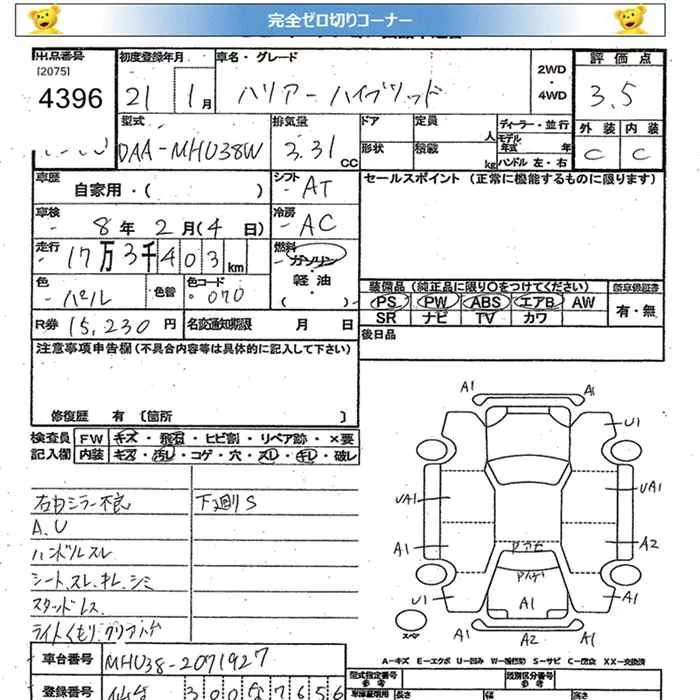 完全ゼロ切りコーナー
出品番号 初度登録年月 車名・グレード 2WD 評価点
[2075] 4396 21 1月 ハリアーハイブリッド ・ 4WD 3.5
型式 排気量 ドア 定員 人 ディーラー・並行 外装 内装
DAA-MHU38W 3.31 CC 形状 積載 kg モデル年式 年 ハンドル 左・右 C C
車歴 自家用・( ) シフト AT セールスポイント (正常に機能するものに限ります)
車検 8年 2月(4日) 冷房 AC
走行 17万3千403km 燃料 ガソリン・
色 パール 色替 色コード 070 軽油 ・( )
装備品 (純正品に限り○をつけてください) 新車保証書
PS PW ABS エアB AW 有・無
SR ナビ TV カワ
R券 15,230円 名変通知期限 月 日 後日品
注意事項申告欄(不具合内容等は具体的に記入して下さい)
修復歴 有 〔箇所 〕
検査員 FW キズ・飛石・ヒビ割・リペア跡・×要
記入欄 内装 キズ・汚レ・コゲ・穴・スレ・キレ・破レ
右ミラー不良 下廻りS
A.U
ハンドルスレ
シート、スレ、キレ、シミ
スタッドレス
ライトくもり
A1 A1
U1
UA1 UA1
A1 A2
U1 A1
A1
A1 A2 A1
スペア
車台番号 MHU38-2071927
A-キズ E-エクボ U-凹み S-サビ C-腐食 XX-交換済
登録番号 仙台 300 な 7656
型式指定番号 類別区分番号
長さ 幅 高さ